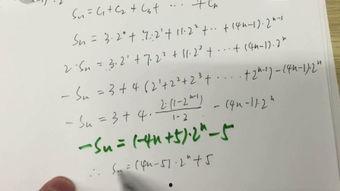 Sn = C₁ + C₂ + C₃ + ⋯ + Cn
Sn = 3·2⁰ + 7·2¹ + 11·2² + ⋯ + (4n-1)·2ⁿ⁻¹
2·Sn = 3·2¹ + 7·2² + 11·2³ + ⋯ + (4n-1)·2ⁿ
-Sn = 3 + 4·(2¹ + 2² + 2³ + ⋯ + 2ⁿ⁻¹) - (4n-1)·2ⁿ
-Sn = 3 + 4·2·(1-2ⁿ⁻¹)/(1-2) - (4n-1)·2ⁿ
-Sn = (-4n+5)·2ⁿ - 5
∴ Sn = (4n-5)·2ⁿ + 5